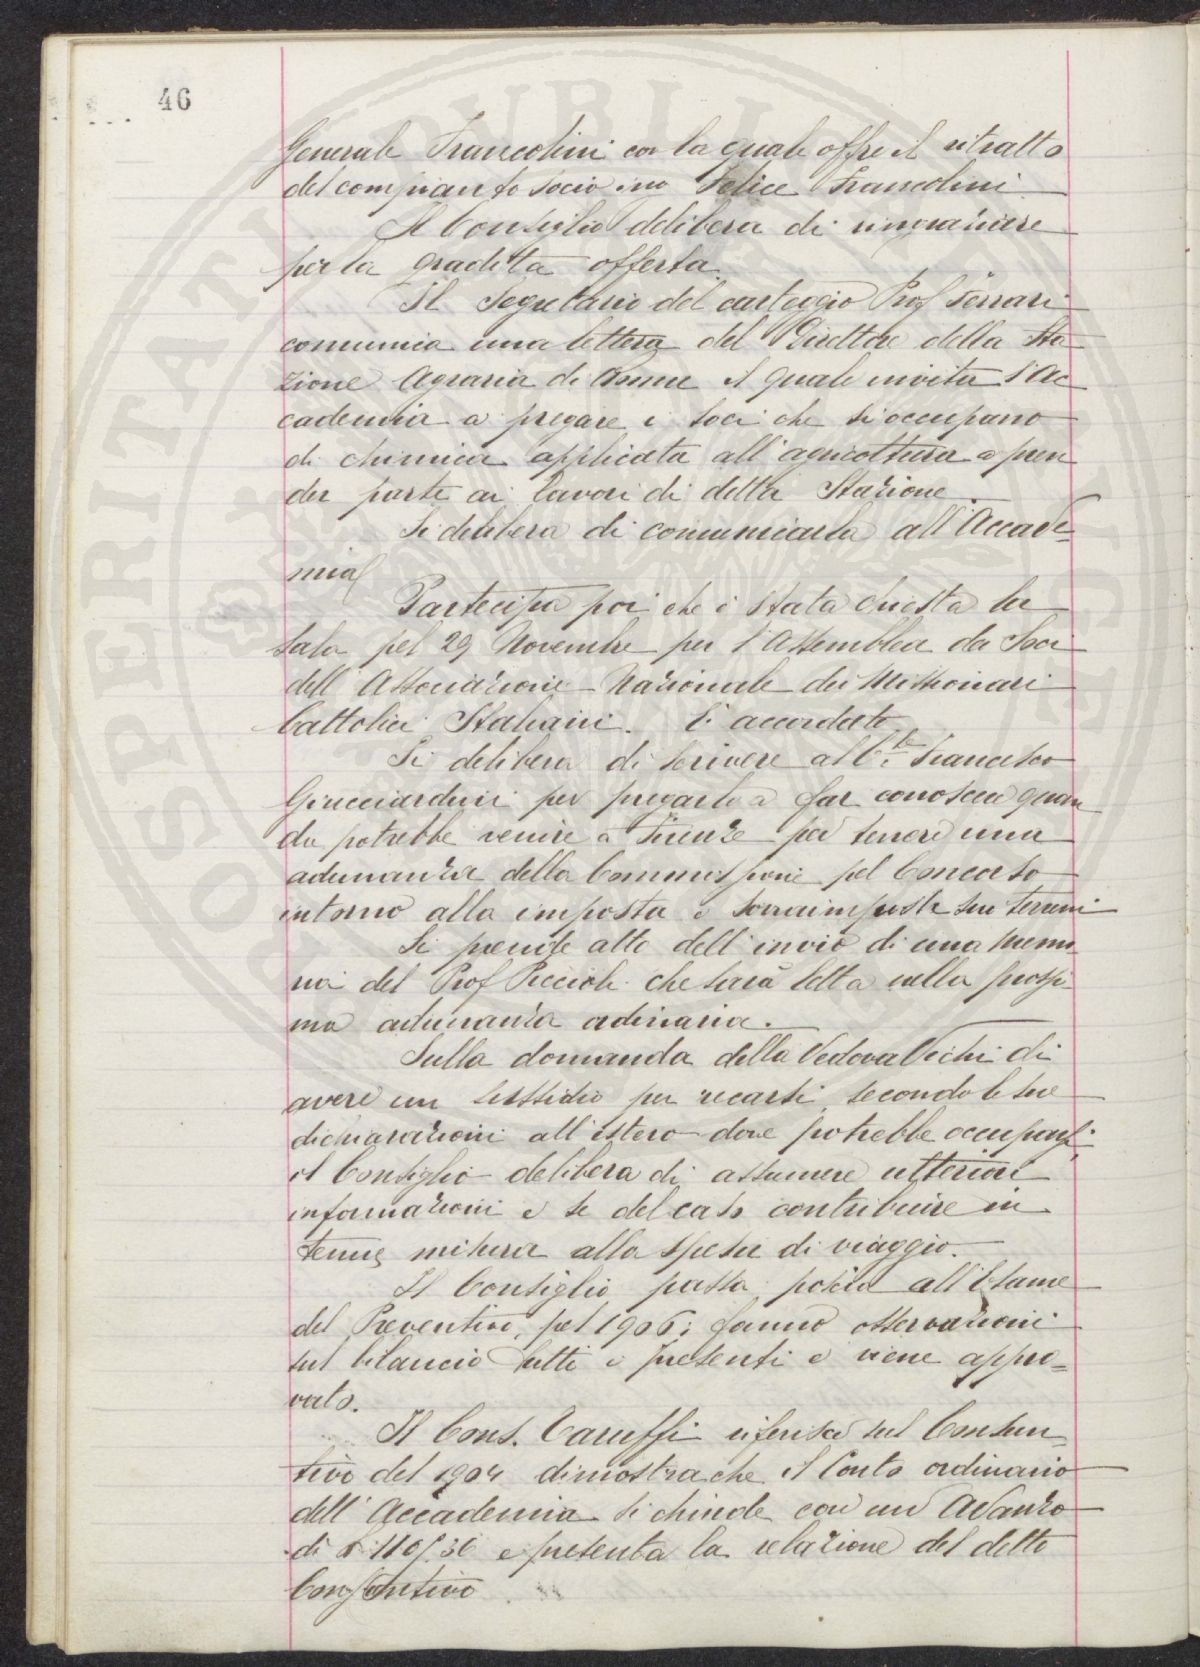 46
Generale Francolini con la quale offre il ritratto
del compianto socio ing Felice Francolini
Il Consiglio delibera di ringraziare
per la gradita offerta.
Il Segretario del carteggio Prof Ferrari
comunica una lettera del Direttore della Sta
zione Agraria di il quale invita l'Ac
cademia a pregare i soci che si occupano
di chimica applicata all'agricoltura a pren
der parte ai lavori di detta Stazione.
Si delibera di comunicarla all'Accade=
mia
Partecipa poi che è stata chiesta la
sala pel 29 Novembre per l'Assemblea da Soci
dell'Associazione Nazionale dei Missionari
Cattolici Italiani. È accordato
Si delibera di scrivere al C.te Francesco
Giucciardini per pregarlo a far conoscere quan
do potrebbe venire a Firenze per tenere una
adunanza della Commissione pel Concorso
intorno alla imposta e sovraimposta sui terreni
Si prende atto dell'invio di una memo
ria del Prof Piccioli che sarà letta nella prossi
ma adunanza ordinaria.
Sulla domanda della Vedova Vichi di
avere un sussidio per recarsi, secondo le sue
dichiarazioni all'estero dove potrebbe occuparsi,
il Consiglio delibera di assumere ulteriori
informazioni e se del caso contribuire in
tenue misura alla spesa di viaggio.
Il Consiglio passa poscia all'Esame
del Preventivo pel 1906; fanno osservazioni
sul bilancio tutti i presenti e viene appro=
vato.
Il Cons. Caruffi riferisce sul Consun_
tivo del 1904 dimostra che il Conto ordinario
dell'Accademia si chiude con un Avanzo
di e presenta la relazione del detto
Consuntivo
SPERITATI PUBLICAE